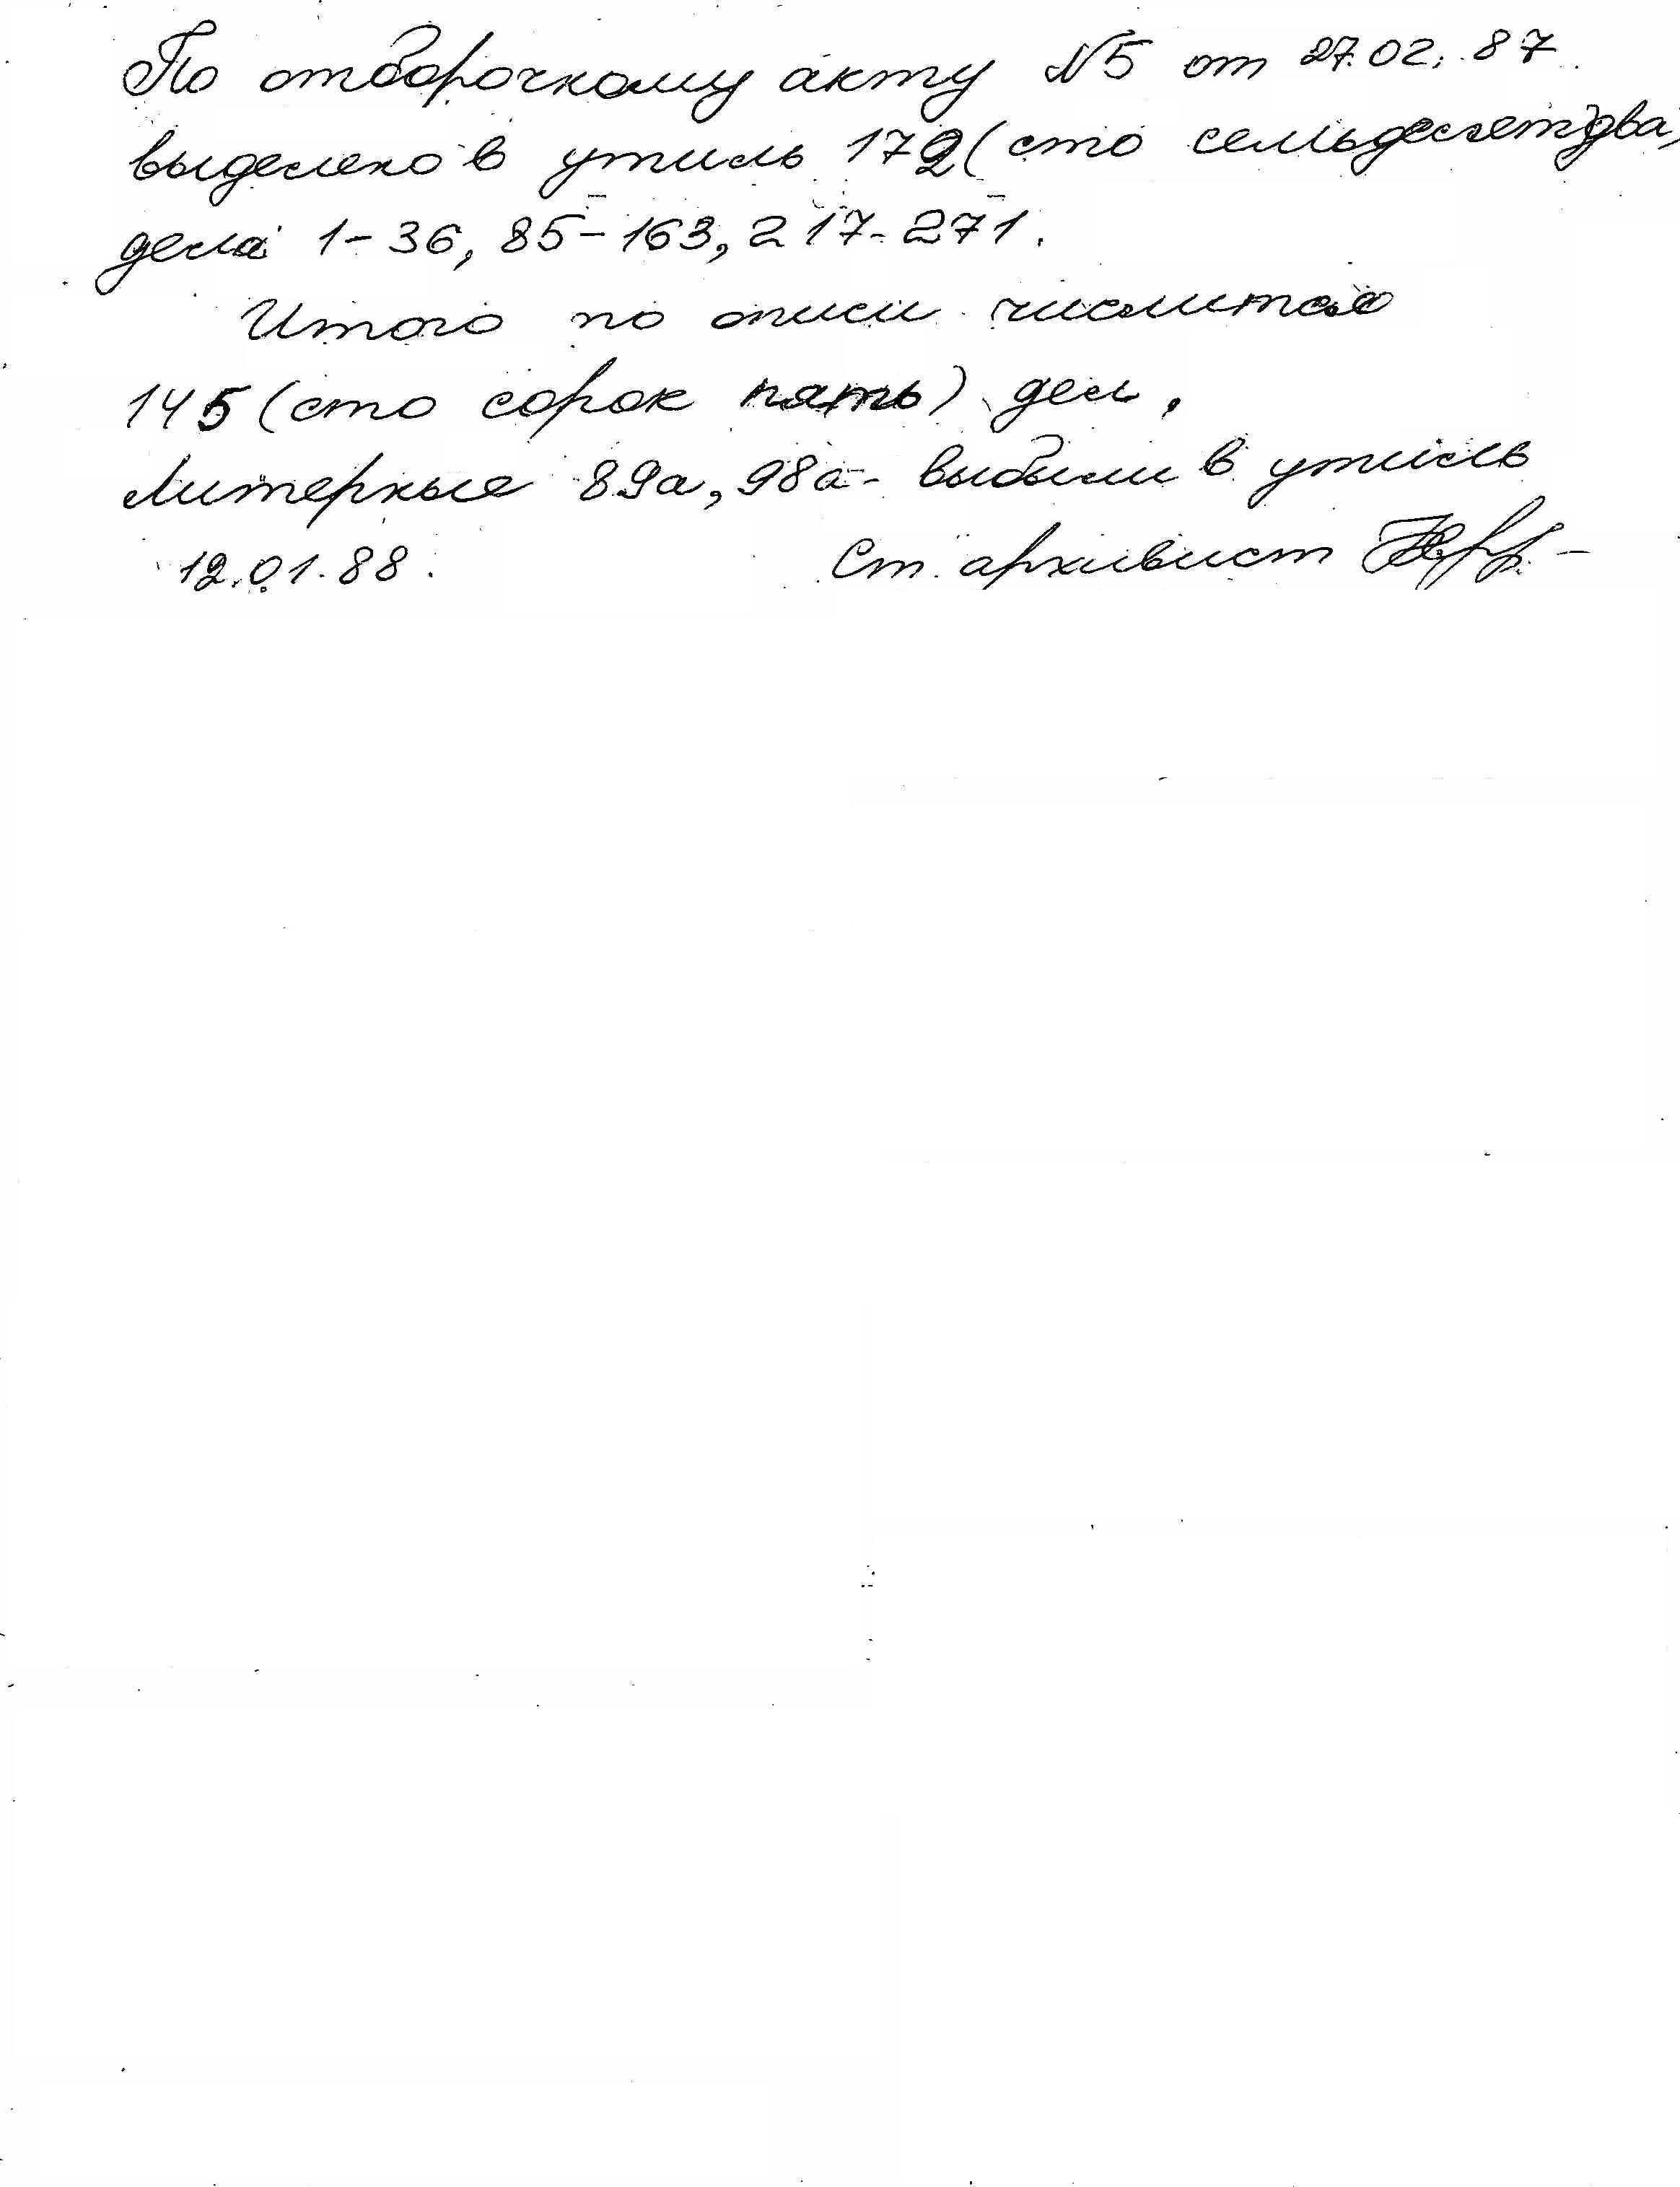 По отборочному акту №5 от 27.02.87
выделено в утиль 172 (сто семьдесят два)
дела 1-36, 85-163, 217-271.
Итого по описи числится
145 (сто сорок пять) дел.
Литерные 89а, 98а - выбыли в утиль
12.01.88. Ст. архивист